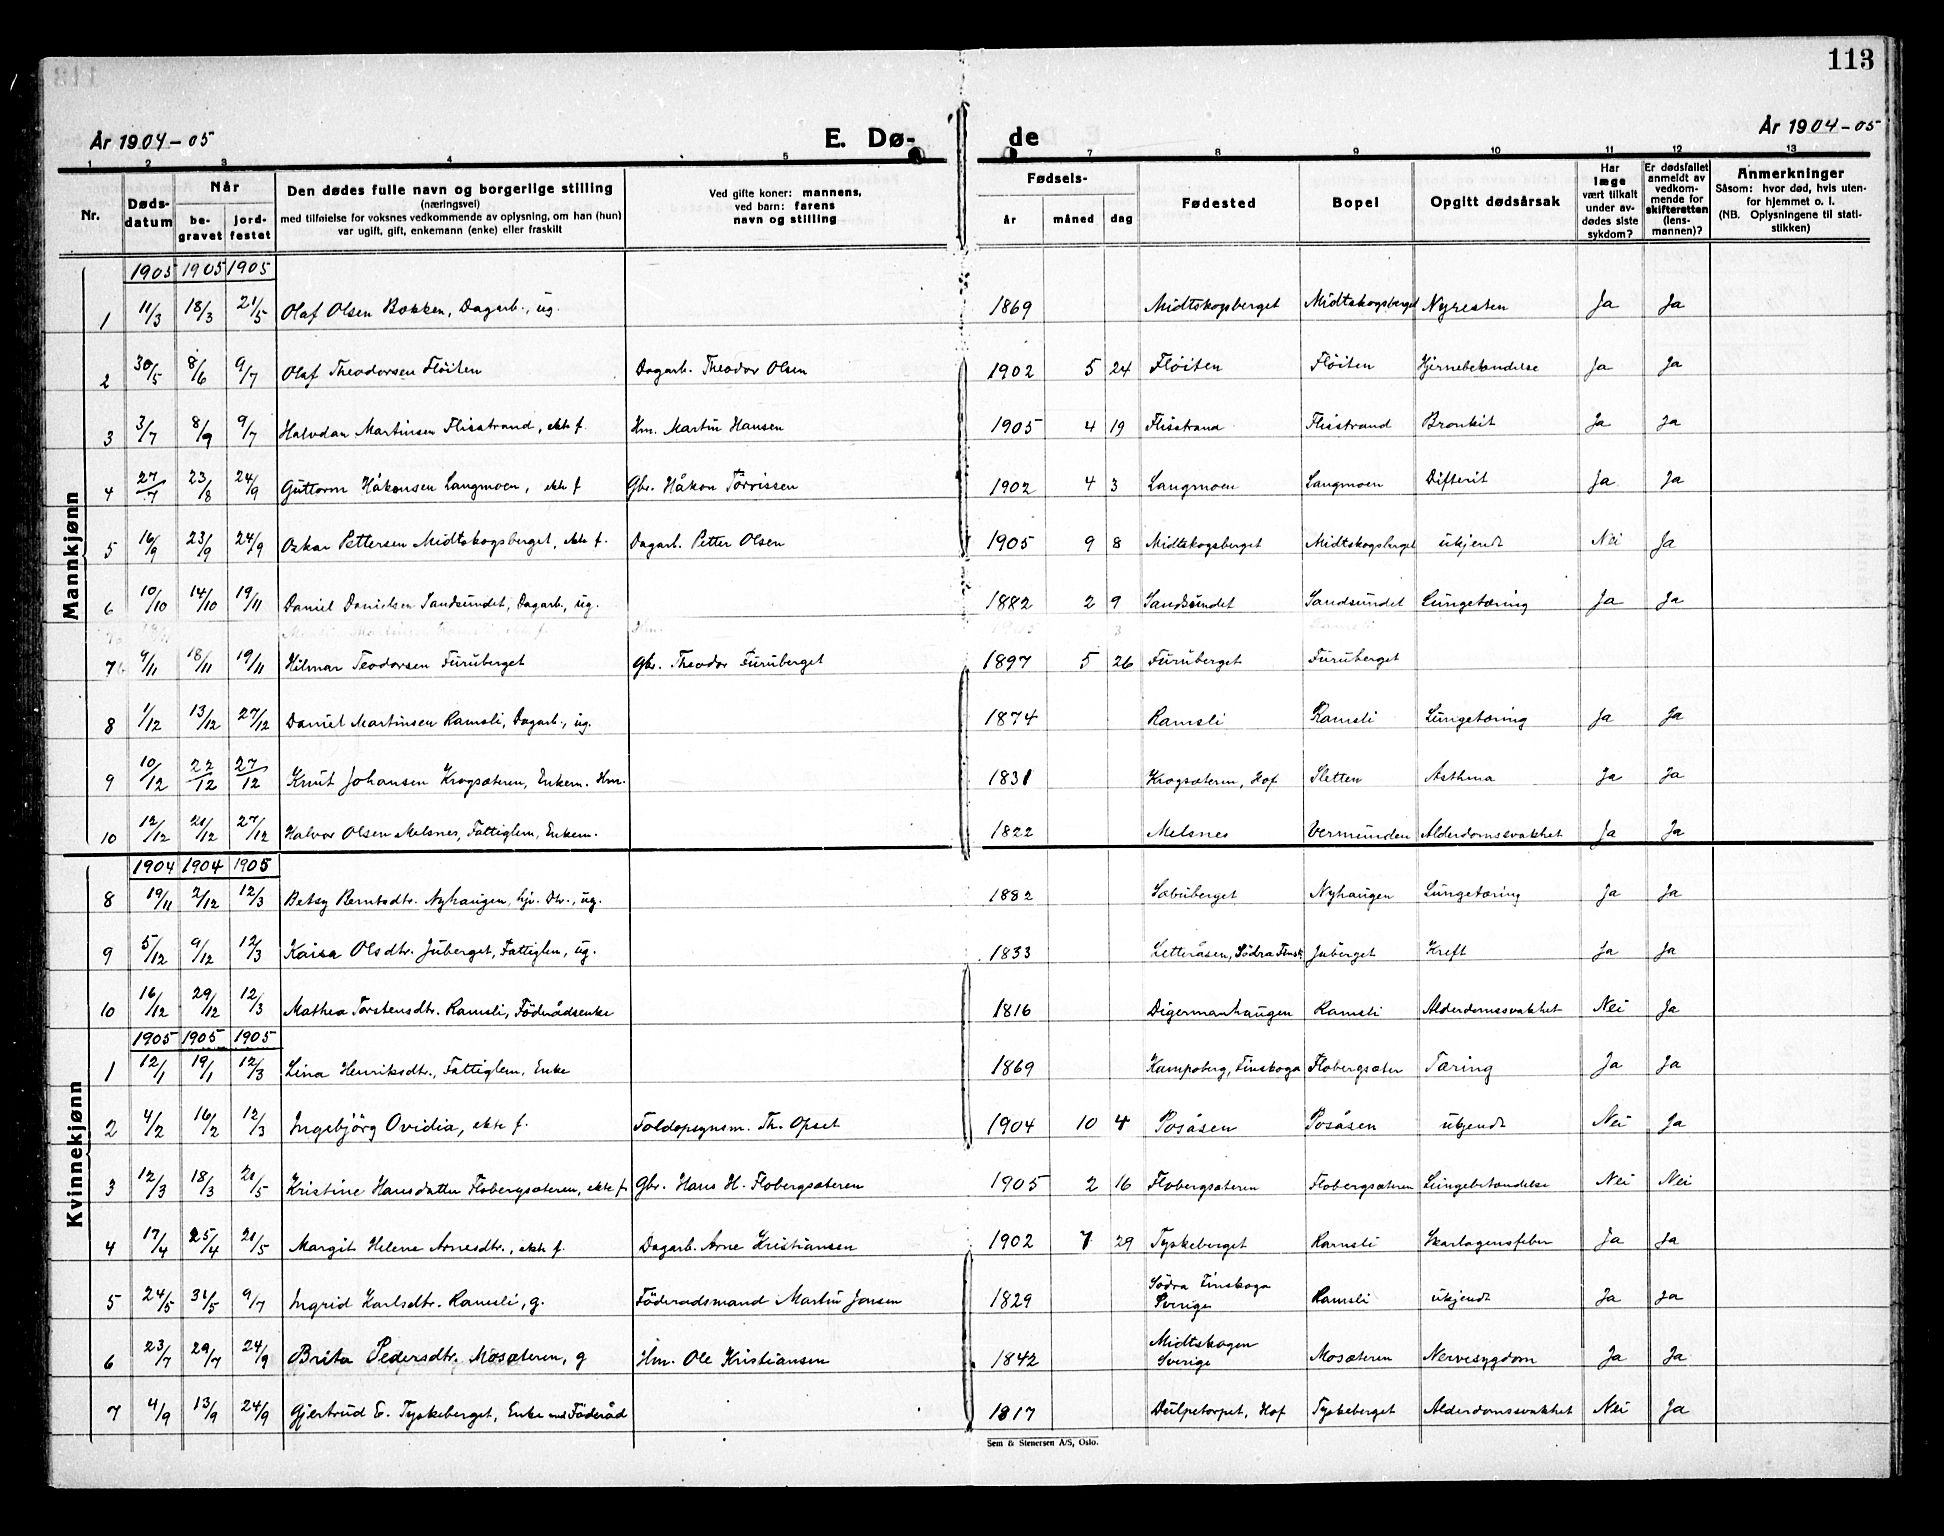 113
År 1904-05 E. Dø- de År 1904-05
1 2 3 4 5 7 8 9 10 11 12 13
Nr. Dødsdatum Når begravet jordfestet Den dødes fulle navn og borgerlige stilling (næringsvei) med tilføielse for voksnes vedkommende av oplysning, om han (hun) var ugift, gift, enkemann (enke) eller fraskilt Ved gifte koner: mannens, ved barn: farens navn og stilling Fødsels- år måned dag Fødested Bopel Opgitt dødsårsak Har læge vært tilkalt under avdødes siste sykdom? Er dødsfallet anmeldt av vedkommende for skifteretten (lensmannen)? Anmerkninger Såsom: hvor død, hvis utenfor hjemmet o. l. (NB. Oplysningene til statistikken)
Mannkjønn
1905 1905 1905
1 11/3 18/3 21/5 Olaf Olsen Bakken, Dagarb., ug. 1869 Midtskogsberget Midtskogsberget Nyresten Ja Ja
2 30/5 8/6 9/7 Olaf Theodorsen Flöiten Dagarb. Theodor Olsen 1902 5 24 Flöiten Flöiten Hjernebetændelse Ja Ja
3 3/7 8/9 9/7 Halvdan Martinsen Flisstrand, ekte f. Hm. Martin Hansen 1905 4 19 Flisstrand Flisstrand Bronkit Ja Ja
4 27/7 23/8 24/9 Guttorm Håkonsen Langmoen, ekte f Gbr. Håkon Torrissen 1902 4 3 Langmoen Langmoen Difterit Ja Ja
5 16/9 23/9 24/9 Oskar Pettersen Midtskogsberget, ekte f. Dagarb. Petter Olsen 1905 9 8 Midtskogsberget Midtskogsberget ukjendt Nei Ja
6 10/10 14/10 19/11 Daniel Danielsen Sandsundet, Dagarb., ug. 1882 2 9 Sandsundet Sandsundet Lungetæring Ja Ja
7 9/11 18/11 19/11 Hilmar Teodorsen Furuberget Gbr. Theodor Furuberget 1897 5 26 Furuberget Furuberget
8 1/12 13/12 27/12 Daniel Martinsen Ramsli, Dagarb., ug. 1874 Ramsli Ramsli Lungetæring Ja Ja
9 10/12 22/12 27/12 Knut Johansen Krogsæteren, Enkem. Hm. 1831 Krogsæteren, Hof Sletten Asthma Ja Ja
10 12/12 21/12 27/12 Halvor Olsen Melsnes, Fattiglem, Enkem. 1822 Melsnes Vermunden Alderdomssvakhet Ja Ja
Kvinnekjønn
1904 1904 1905
8 19/11 2/12 12/3 Betsy Berntsdtr. Nyhaugen, hjv. Dtr., ug. 1882 Sæbuberget Nyhaugen Lungetæring Ja Ja
9 5/12 9/12 12/3 Kaisa Olsdtr. Juberget, Fattiglem, ug. 1833 Letteråsen, Södra Finsk. Juberget Kreft Ja Ja
10 16/12 29/12 12/3 Mathea Torstensdtr. Ramsli, Föderådsenke 1816 Digermanhaugen Ramsli Alderdomssvakhet Nei Ja
1905 1905 1905
1 12/1 19/1 12/3 Lina Henriksdtr., Fattiglem, Enke 1869 Kampoberg, Finskoga Flobergsæter Tæring Ja Ja
2 4/2 16/2 12/3 Ingebjörg Ovidia, ekte f. Foldopsynsm. Th. Opset 1904 10 4 Posåsen Posåsen ukjendt Nei Ja
3 12/3 18/3 21/5 Kristine Hansdatter Flobergsæteren, ekte f Gbr. Hans H. Flobergsæteren 1905 2 16 Flobergsæteren Flobergsæteren Lungebetændelse Nei Nei
4 17/4 25/4 21/5 Margit Helene Arnesdtr., ekte f. Dagarb. Arne Kristiansen 1902 7 29 Tyskeberget Ramsli Skarlagensfeber Ja Ja
5 24/5 31/5 9/7 Ingrid Karlsdtr. Ramsli, g. Föderådsmand Martin Jonsen 1829 Södra Finskoga Sverige Ramsli ukjendt Ja Ja
6 23/7 29/7 24/9 Brita Pedersdtr. Mosæteren, g Hm. Ole Kristiansen 1842 Midtskogen Sverige Mosæteren Nervesygdom Ja Ja
7 4/9 13/9 24/9 Gjertrud E. Tyskeberget, Enke med Föderåd 1817 Dulpetorpet, Hof Tyskeberget Alderdomssvakhet Nei Ja
Sem & Stenersen A/S, Oslo.